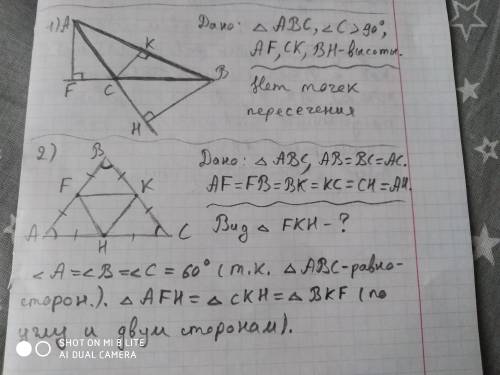 1) A
K
B
F
C
H
Дано: △ ABC, ∠C > 90°,
AF, CK, BH-высоты.
Нет точек
пересечения
2)
B
F
K
A
H
C
Дано: △ ABC, AB=BC=AC.
AF=FB=BK=KC=CH=AH.
Вид △ FKH - ?
∠A=∠B=∠C = 60° (т.к. △ ABC-равно-
сторон.). △ AFH = △ CKH = △ BKF (по
углу и двум сторонам).
SHOT ON MI 8 LITE
AI DUAL CAMERA